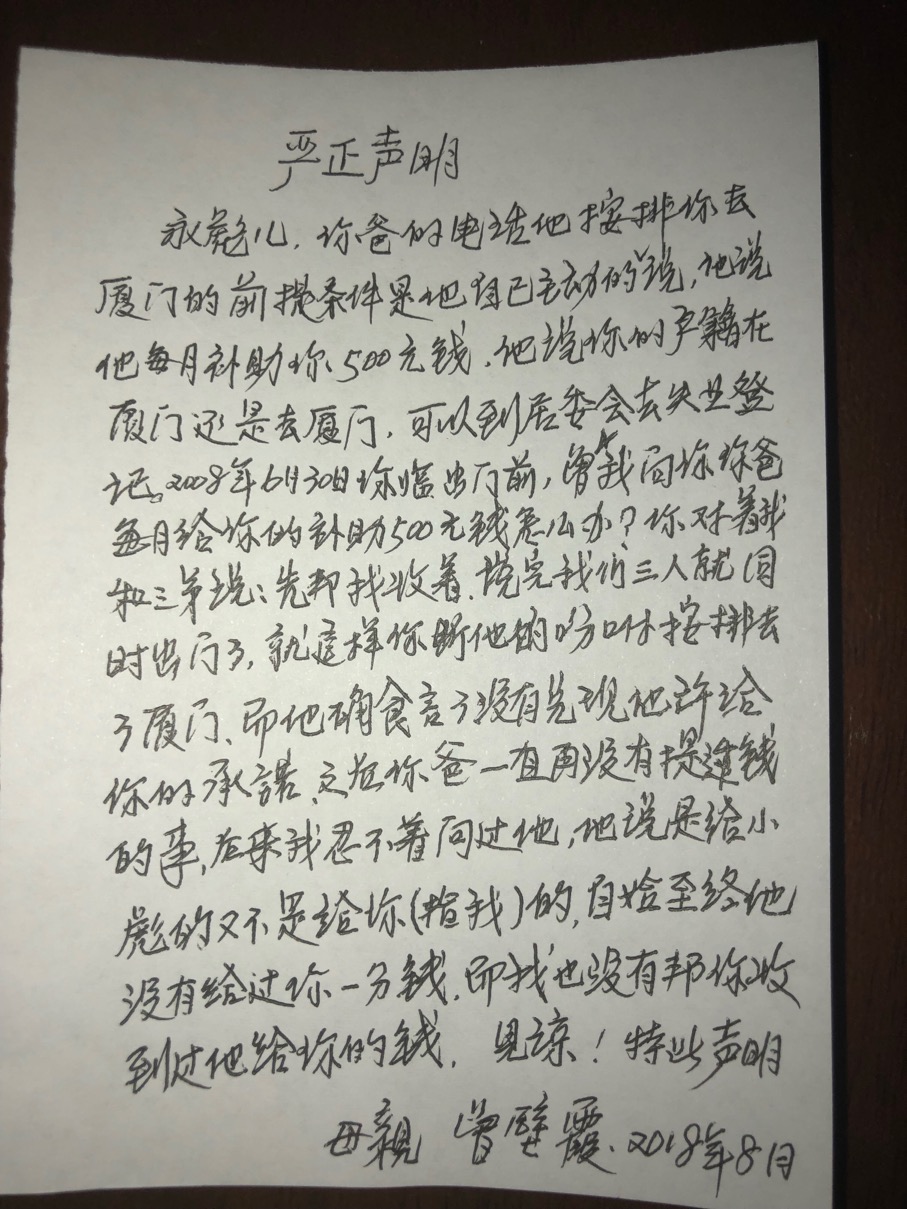 严正声明
永彪儿，你爸的电话他按排你去
厦门的前提条件是他自己主动的说，他说
他每月补助你500元钱，他说你的户籍在
厦门还是去厦门，可以到居委会去失业登
记。2008年6月30日你临出门前，曾我问你你爸
每月给你的补助500元钱怎么办？你对着我
和三弟说：先邦我收着，说完我们三人就同
时出门了，就这样你听他的吩咐按排去
了厦门、而他确食言了没有兑现他许给
你的承諾，之后你爸一直再没有提过钱
的事，后来我忍不着问过他，他说是给小
彪的又不是给你(指我)的，自始至终他
没有给过你一分钱，而我也没有邦你收
到过他给你的钱，見谅！特此声明
母親 曾壁霞.2018年8月